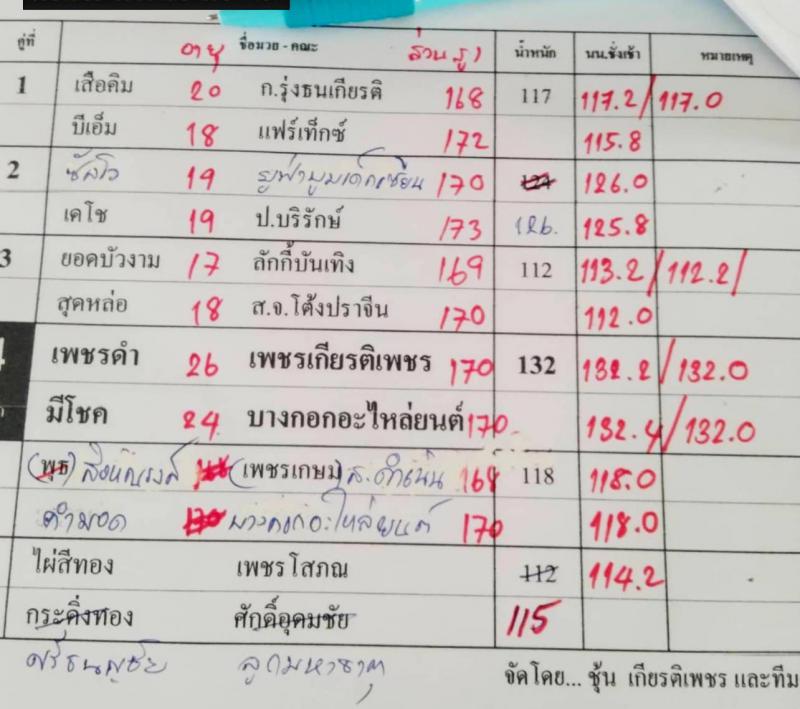 คู่ที่ อายุ ชื่อมวย - คณะ ส่วนสูง น้ำหนัก นน.ชั่งเช้า หมายเหตุ
1 เสือคิม 20 ก.รุ่งธนเกียรติ 168 117 117.2/117.0
บีเอ็ม 18 แฟร์เท็กซ์ 172 115.8
2 ซัลโว 19 170 124 126.0
เดโช 19 ป.บริรักษ์ 173 126. 125.8
3 ยอดบัวงาม 17 ลักกี้บันเทิง 169 112 113.2/112.2/
สุดหล่อ 18 ส.จ.โต้งปราจีน 170 112.0
เพชรดำ 26 เพชรเกียรติเพชร 170 132 132.2/132.0
มีโชค 24 บางกอกอะไหล่ยนต์ 170 132.4/132.0
(พุธ) (เพชรเกษม) 168 118 118.0
คำมอด 170 บางกอกอะไหล่ยนต์ 170 118.0
ไผ่สีทอง เพชรโสภณ 112 114.2
กระดิ่งทอง ศักดิ์อุดมชัย 115
ลูกมหาธาตุ
จัดโดย... ชุ้น เกียรติเพชร และทีม